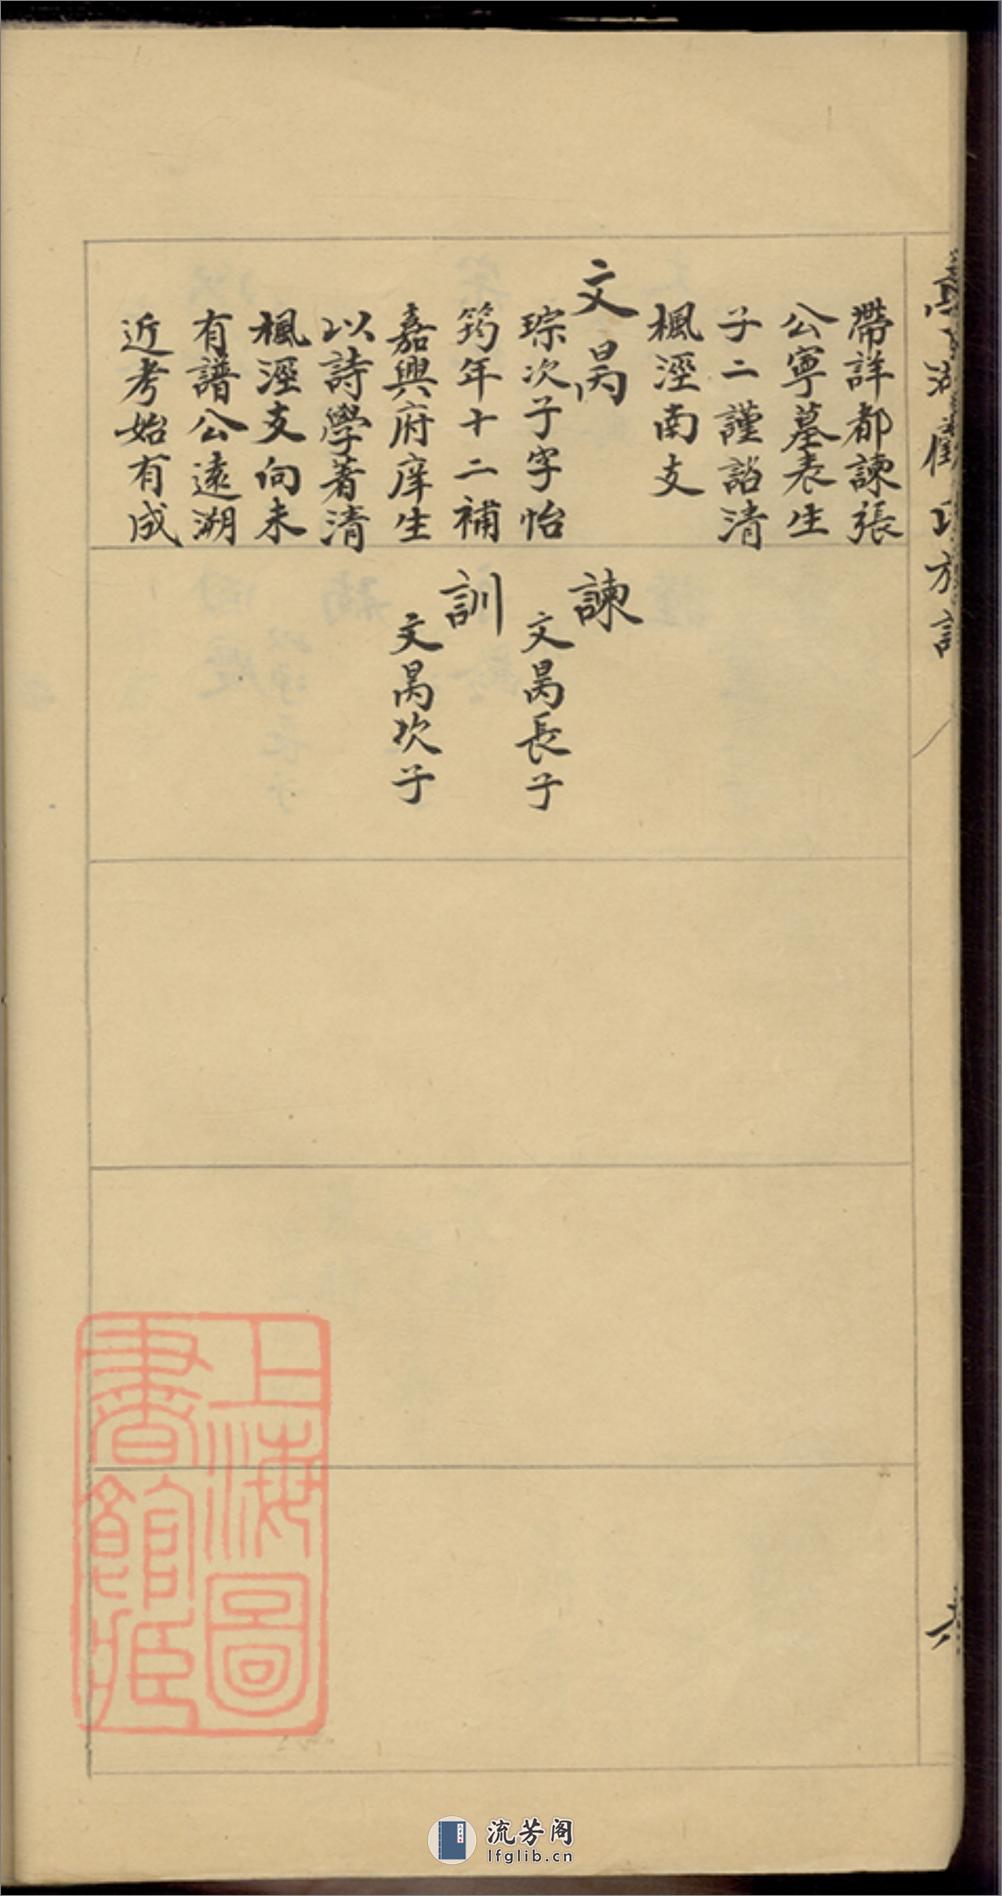 帶詳都諫張
公寧墓表生
子二謹詔清
楓涇南支
文昺
琮次子字怡
筠年十二補
嘉興府庠生
以詩學著清
楓涇支向未
有譜公遠溯
近考始有成
諫
文昺長子
訓
文昺次子
上海圖
書館藏
流芳阁
lfglib.cn